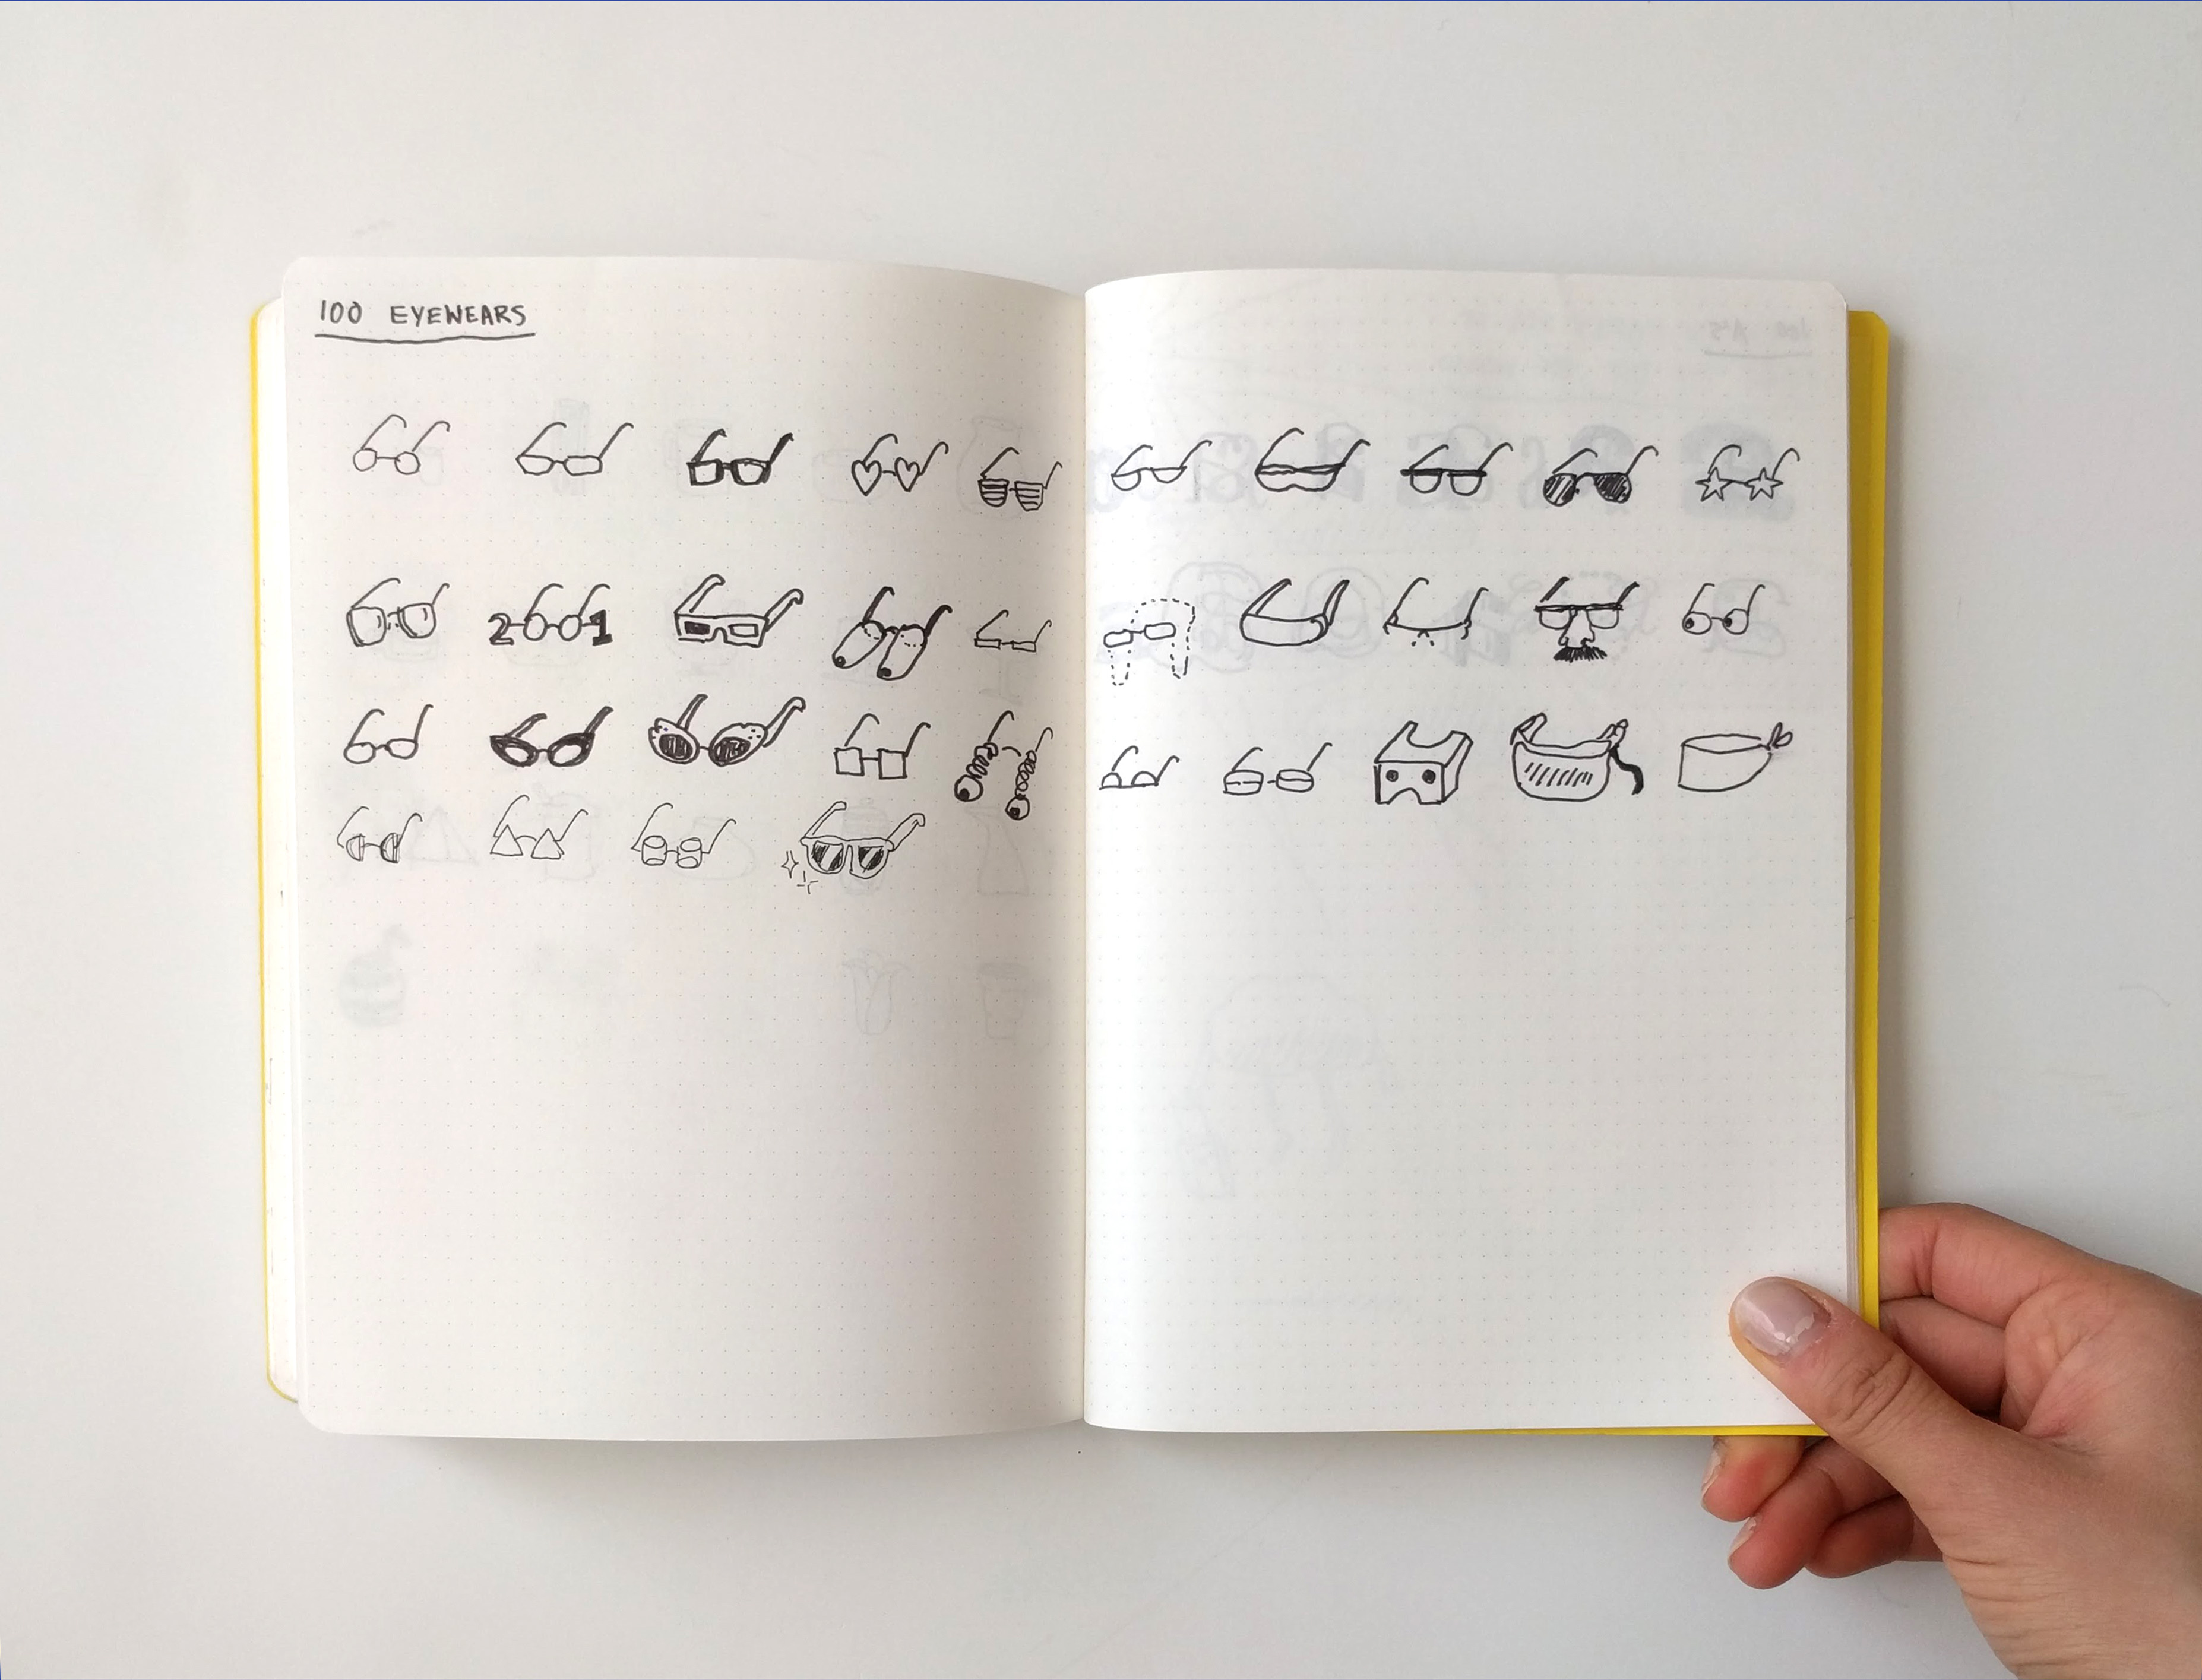 100 EYEWEARS
2001